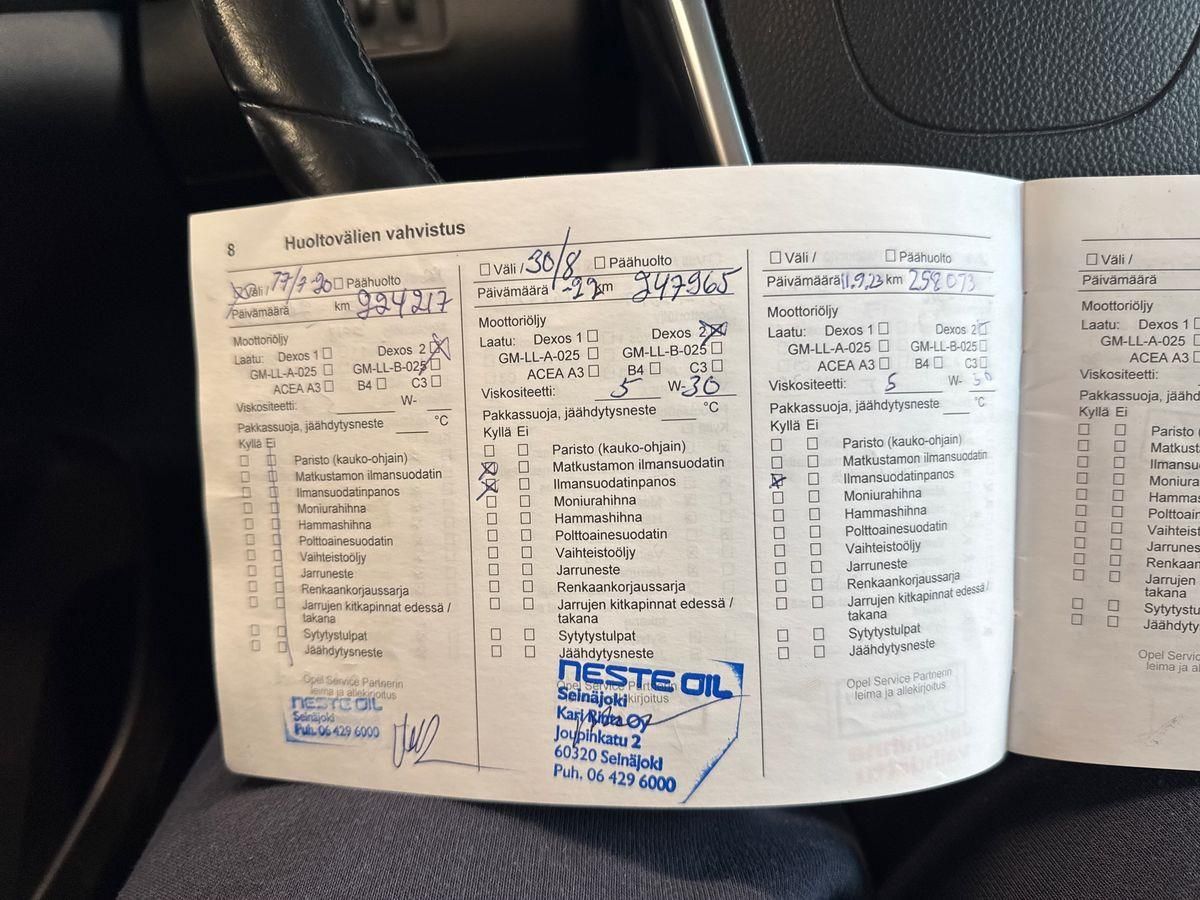 8 Huoltovälien vahvistus
Väli / 17/7-20 Päähuolto
Päivämäärä km 224217
Moottoriöljy
Laatu: Dexos 1 Dexos 2
GM-LL-A-025 GM-LL-B-025
ACEA A3 B4 C3
Viskositeetti: W-
Pakkassuoja, jäähdytysneste °C
Kyllä Ei
Paristo (kauko-ohjain)
Matkustamon ilmansuodatin
Ilmansuodatinpanos
Moniurahihna
Hammashihna
Polttoainesuodatin
Vaihteistoöljy
Jarruneste
Renkaankorjaussarja
Jarrujen kitkapinnat edessä /
takana
Sytytystulpat
Jäähdytysneste
Opel Service Partnerin
leima ja allekirjoitus
NESTE OIL
Seinäjoki
Puh. 06 429 6000
Väli / 30/8 Päähuolto
Päivämäärä -22 km 247965
Moottoriöljy
Laatu: Dexos 1 Dexos 2
GM-LL-A-025 GM-LL-B-025
ACEA A3 B4 C3
Viskositeetti: 5 W-30
Pakkassuoja, jäähdytysneste °C
Kyllä Ei
Paristo (kauko-ohjain)
Matkustamon ilmansuodatin
Ilmansuodatinpanos
Moniurahihna
Hammashihna
Polttoainesuodatin
Vaihteistoöljy
Jarruneste
Renkaankorjaussarja
Jarrujen kitkapinnat edessä /
takana
Sytytystulpat
Jäähdytysneste
Opel Service Partnerin
NESTE OIL
Seinäjoki
Kari Rinta Oy
Joupinkatu 2
60320 Seinäjoki
Puh. 06 429 6000
Väli / Päähuolto
Päivämäärä 11.9.23 km 258073
Moottoriöljy
Laatu: Dexos 1 Dexos 2
GM-LL-A-025 GM-LL-B-025
ACEA A3 B4 C3
Viskositeetti: 5 W- 30
Pakkassuoja, jäähdytysneste °C
Kyllä Ei
Paristo (kauko-ohjain)
Matkustamon ilmansuodatin
Ilmansuodatinpanos
Moniurahihna
Hammashihna
Polttoainesuodatin
Vaihteistoöljy
Jarruneste
Renkaankorjaussarja
Jarrujen kitkapinnat edessä /
takana
Sytytystulpat
Jäähdytysneste
Opel Service Partnerin
leima ja allekirjoitus
Väli /
Päivämäärä
Moottoriöljy
Laatu: Dexos 1
GM-LL-A-025
ACEA A3
Viskositeetti:
Pakkassuoja, jäähd
Kyllä Ei
Paristo (
Matkust
Ilmansu
Moniura
Hamma
Polttoain
Vaihteis
Jarrunes
Renkaan
Jarrujen
takana
Sytytystu
Jäähdyty
Opel Servic
leima ja